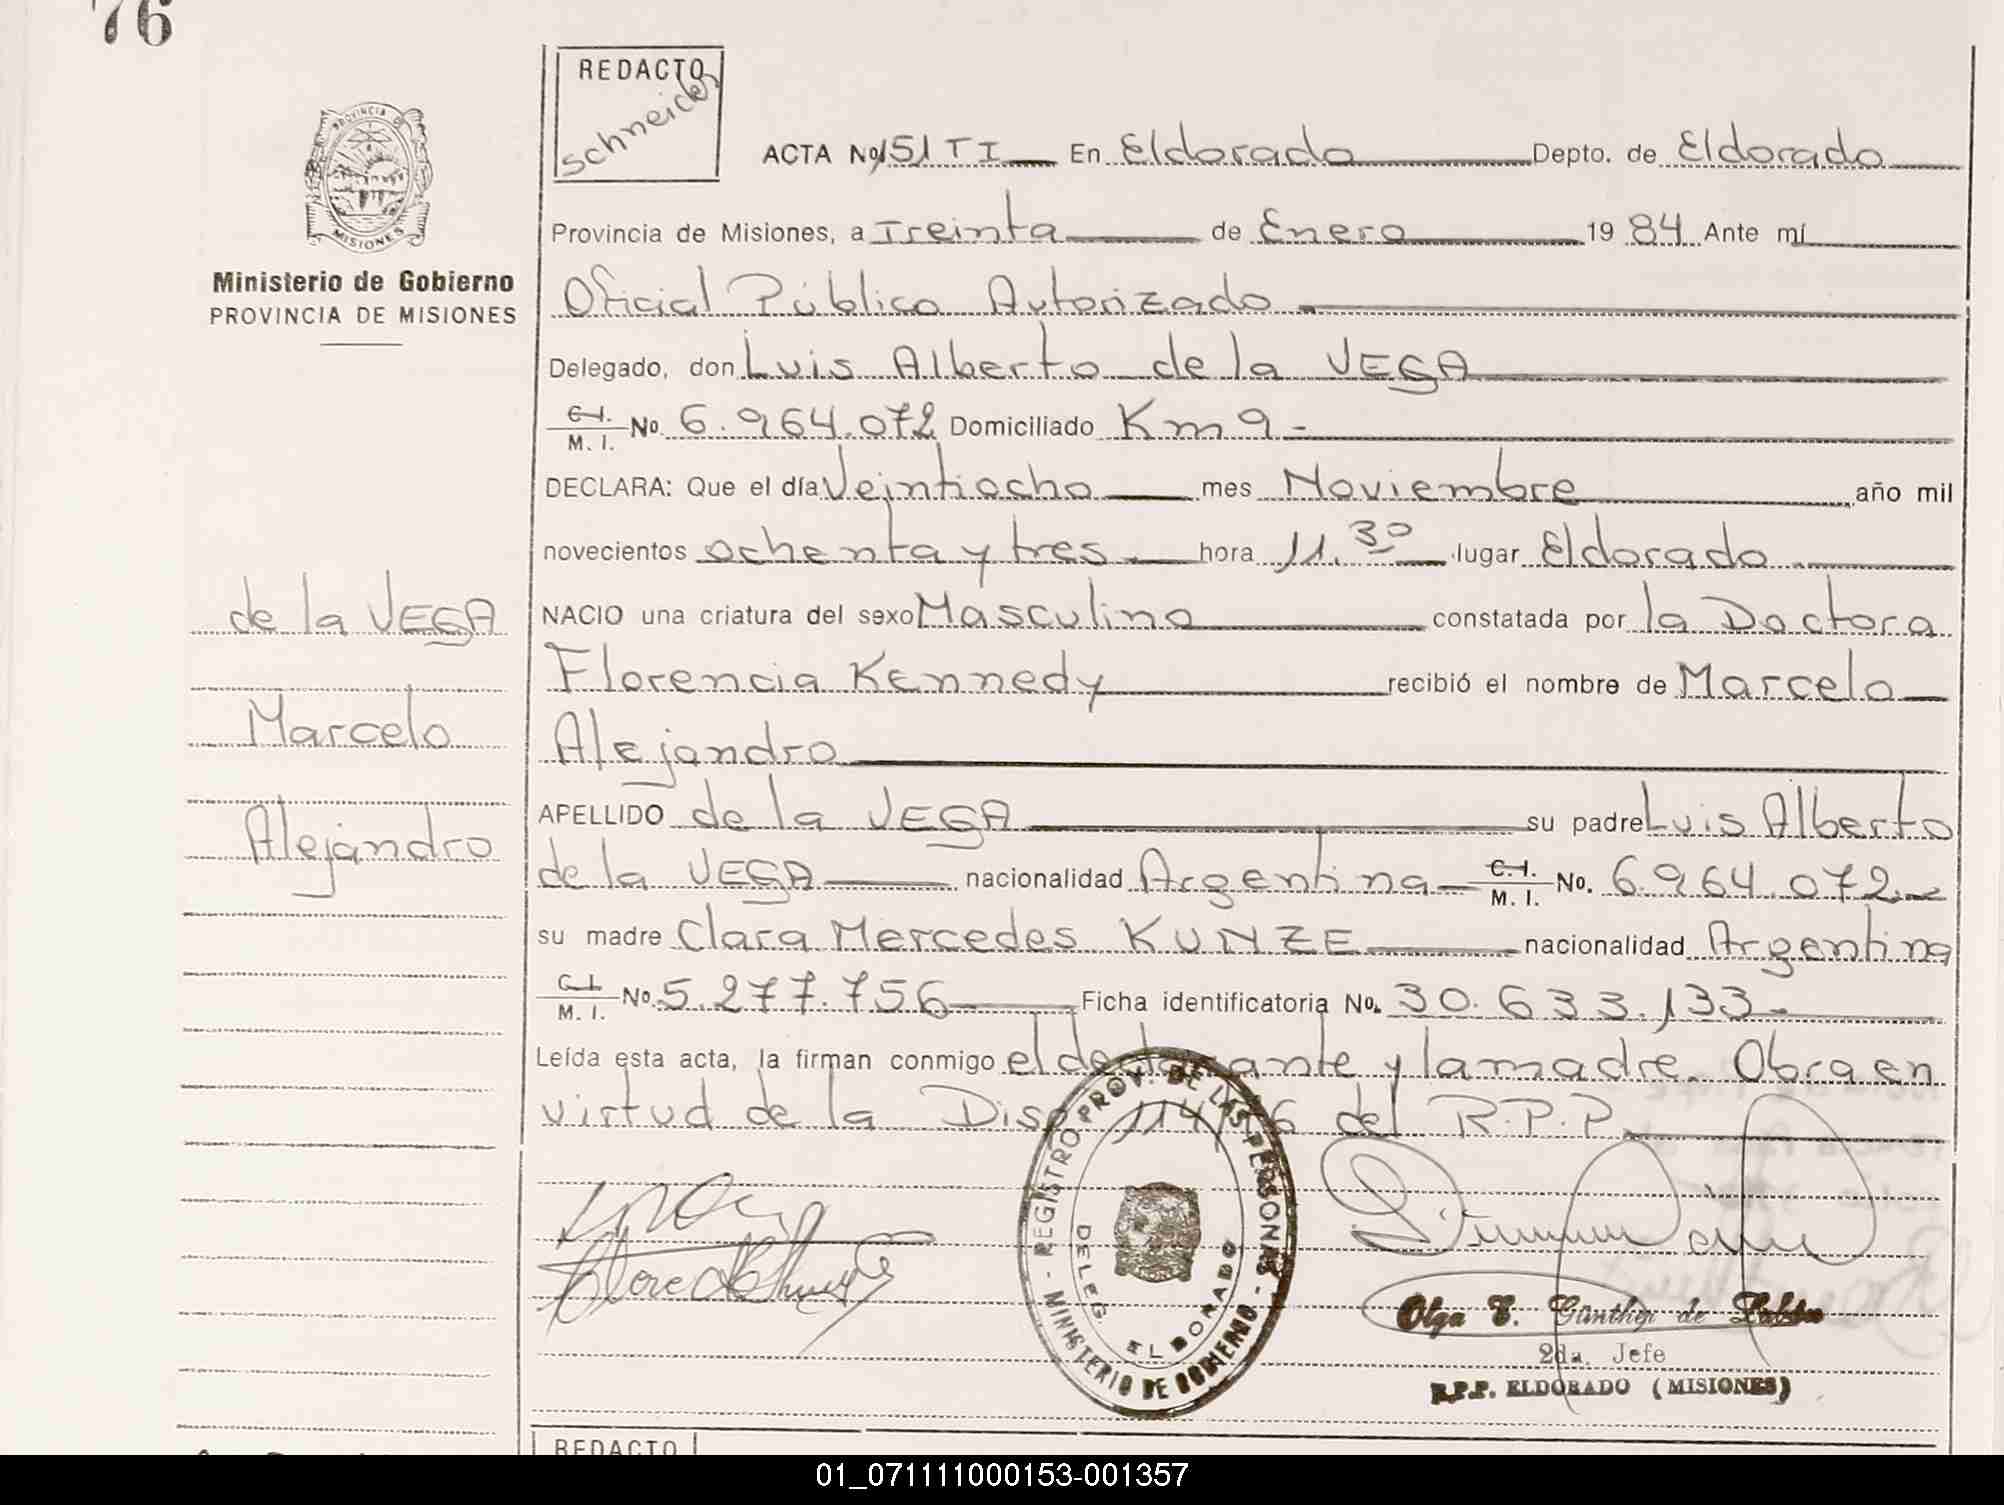 76
REDACTO
Schneider
PROVINCIA DE
MISIONES
Ministerio de Gobierno
PROVINCIA DE MISIONES
ACTA No 151 T I En Eldorado Depto. de Eldorado
Provincia de Misiones, a Treinta de Enero 19 84 Ante mí
Oficial Público Autorizado
Delegado, don Luis Alberto de la VEGA
C.I. M. I. No. 6.964.072 Domiciliado Km 9.-
DECLARA: Que el día Veintiocho mes Noviembre año mil
novecientos ochenta y tres.- hora 11.30 lugar Eldorado
NACIO una criatura del sexo Masculino constatada por la Doctora
Florencia Kennedy recibió el nombre de Marcelo
Alejandro
APELLIDO de la VEGA su padre Luis Alberto
de la VEGA nacionalidad Argentina C.I. M. I. No. 6.964.072.-
su madre Clara Mercedes KUNZE nacionalidad Argentina
C.I. M. I. No. 5.277.756 Ficha identificatoria No. 30.633.133.-
Leída esta acta, la firman conmigo el declarante y la madre. Obra en
virtud de la Disp. 114/76 del R.P.P.
de la VEGA
Marcelo
Alejandro
REGISTRO PROV. DE LAS PERSONAS - MINISTERIO DE GOBIERNO -
DELEG. ELDORADO
Olga E. Günther de
2da. Jefe
R.P.P. ELDORADO (MISIONES)
REDACTO
01_071111000153-001357